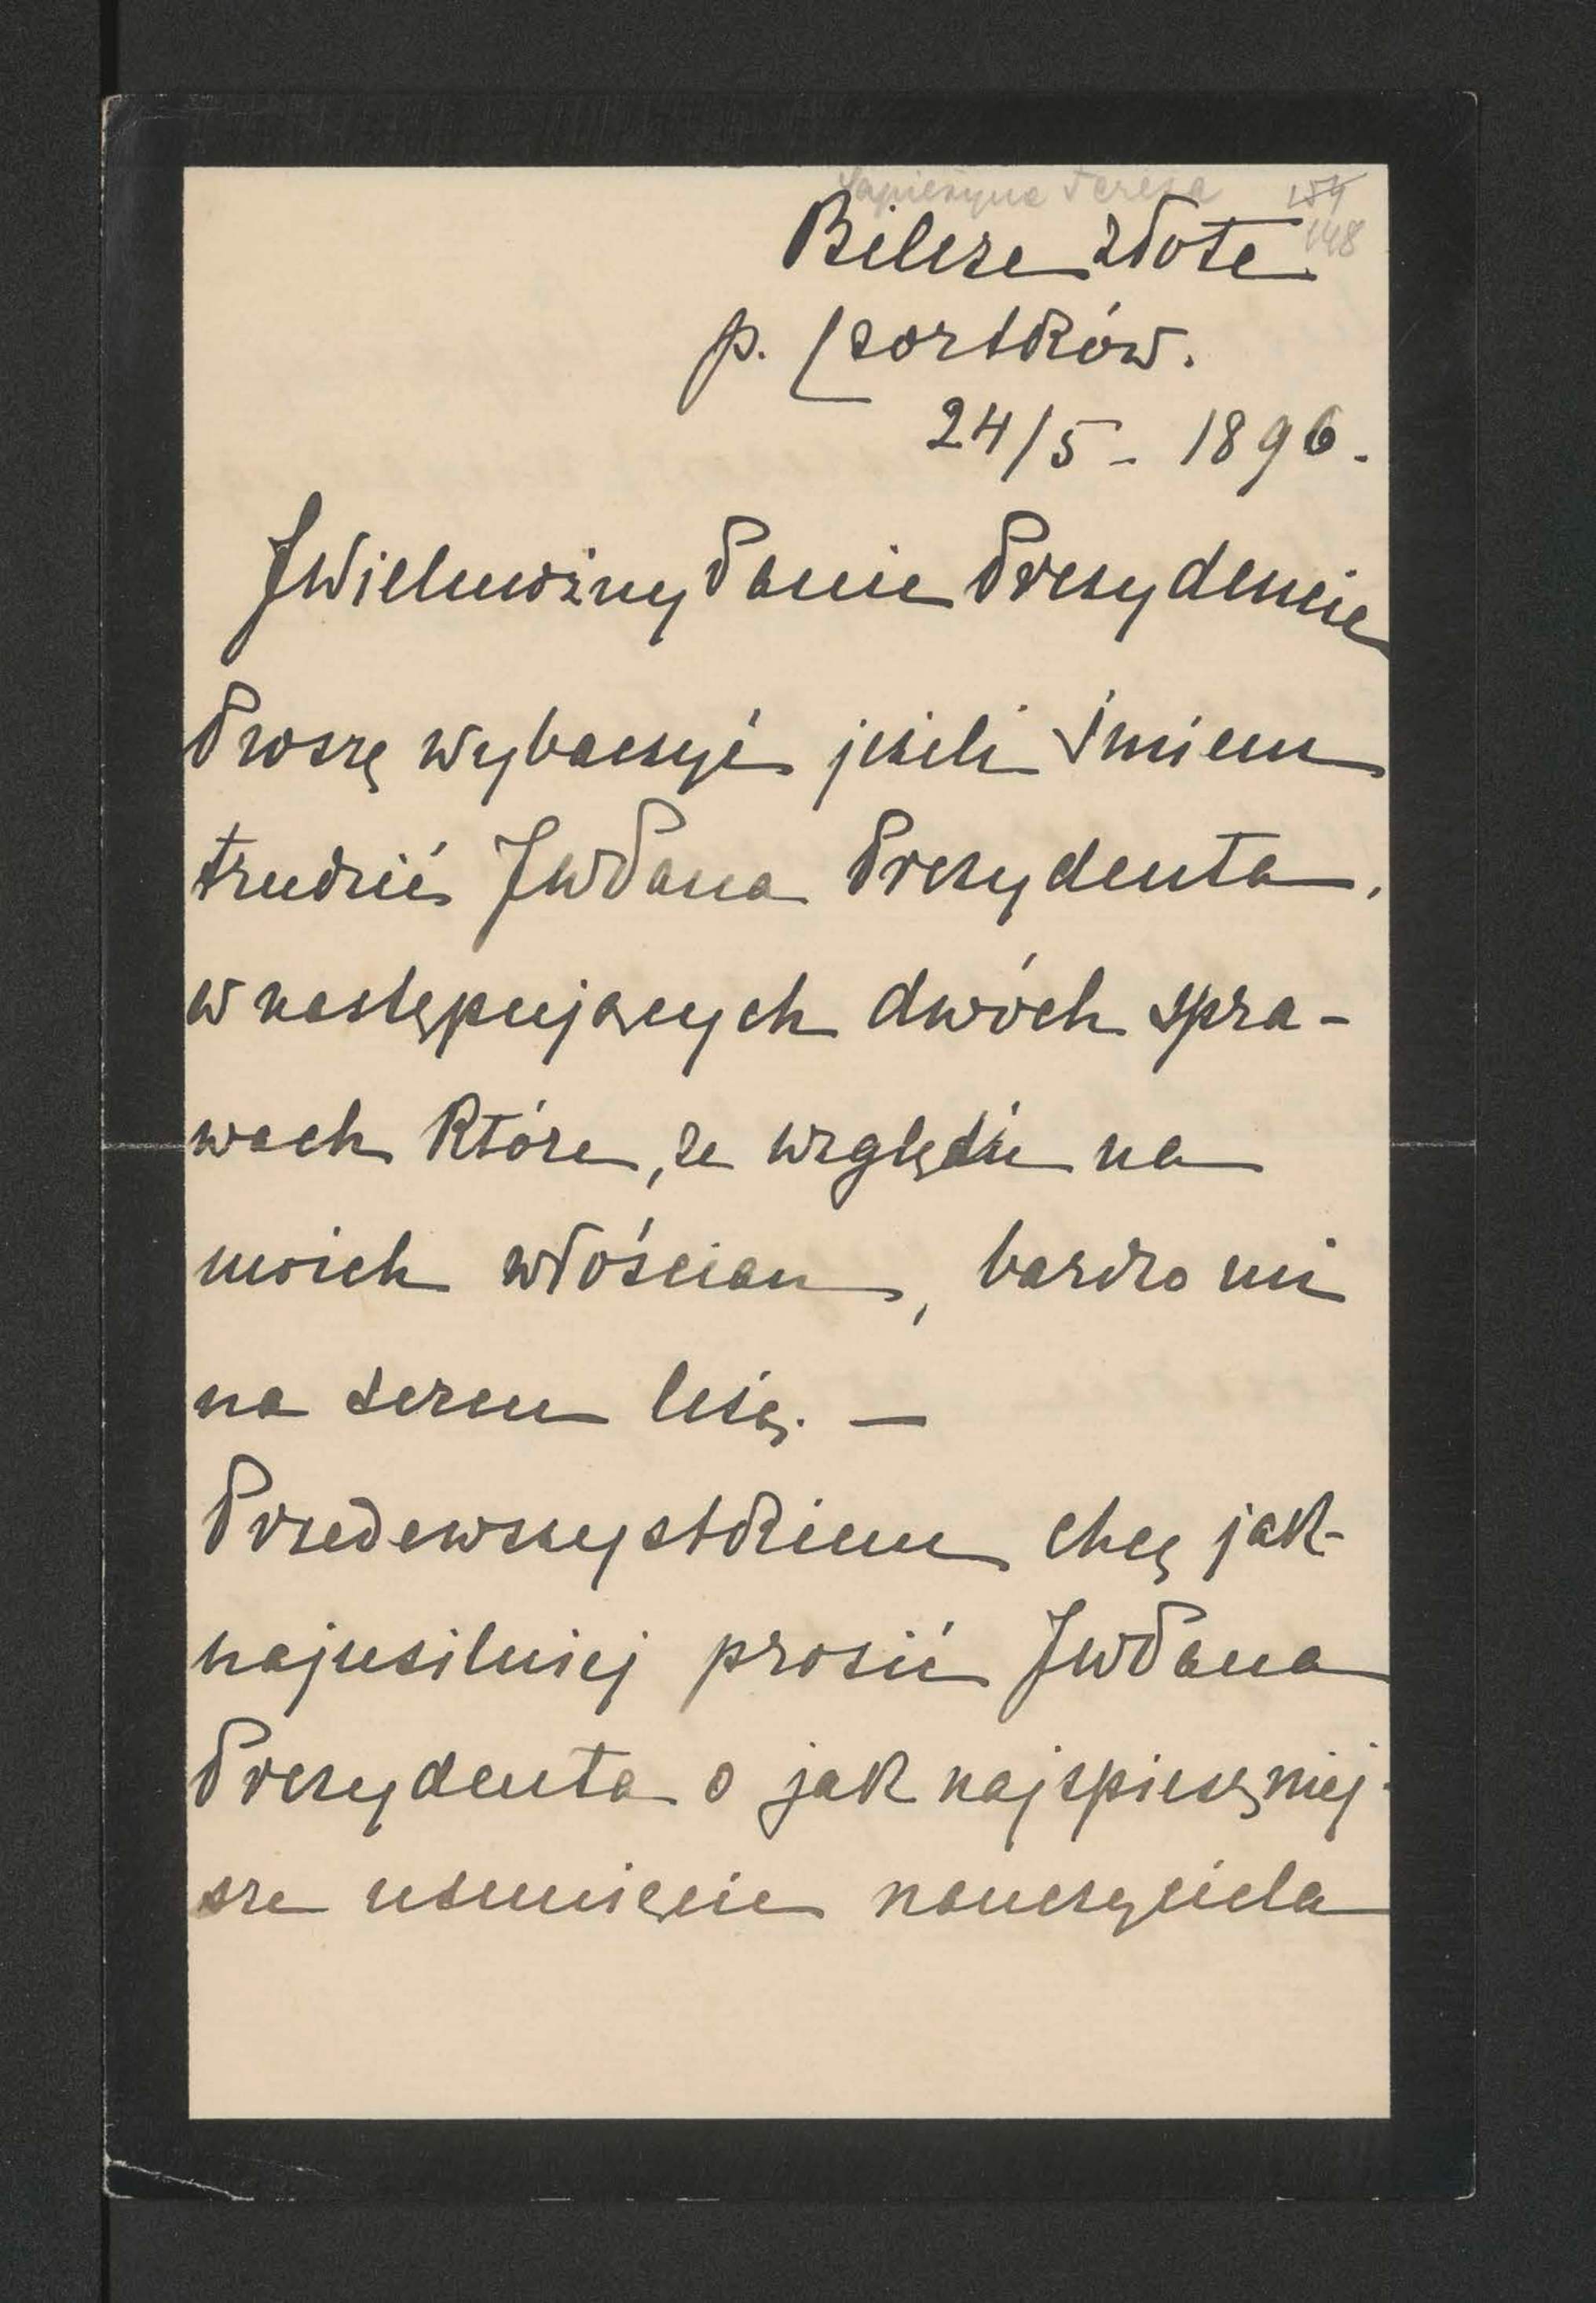 Sapieżyna Teresa 154
148
Bilcze złote
p. Czortków.
24/5 - 1896.
JWielmożny Panie Prezydencie
Proszę wybaczyć jeżeli śmiem
trudzić JWPana Prezydenta,
w następujących dwóch spra-
wach które, ze względu na
moich włościan, bardzo mi
na sercu leżą. —
Przedewszystkiem chcę jak-
najusilniej prosić JWPana
Prezydenta o jak najspieszniej-
sze usunięcie nauczyciela